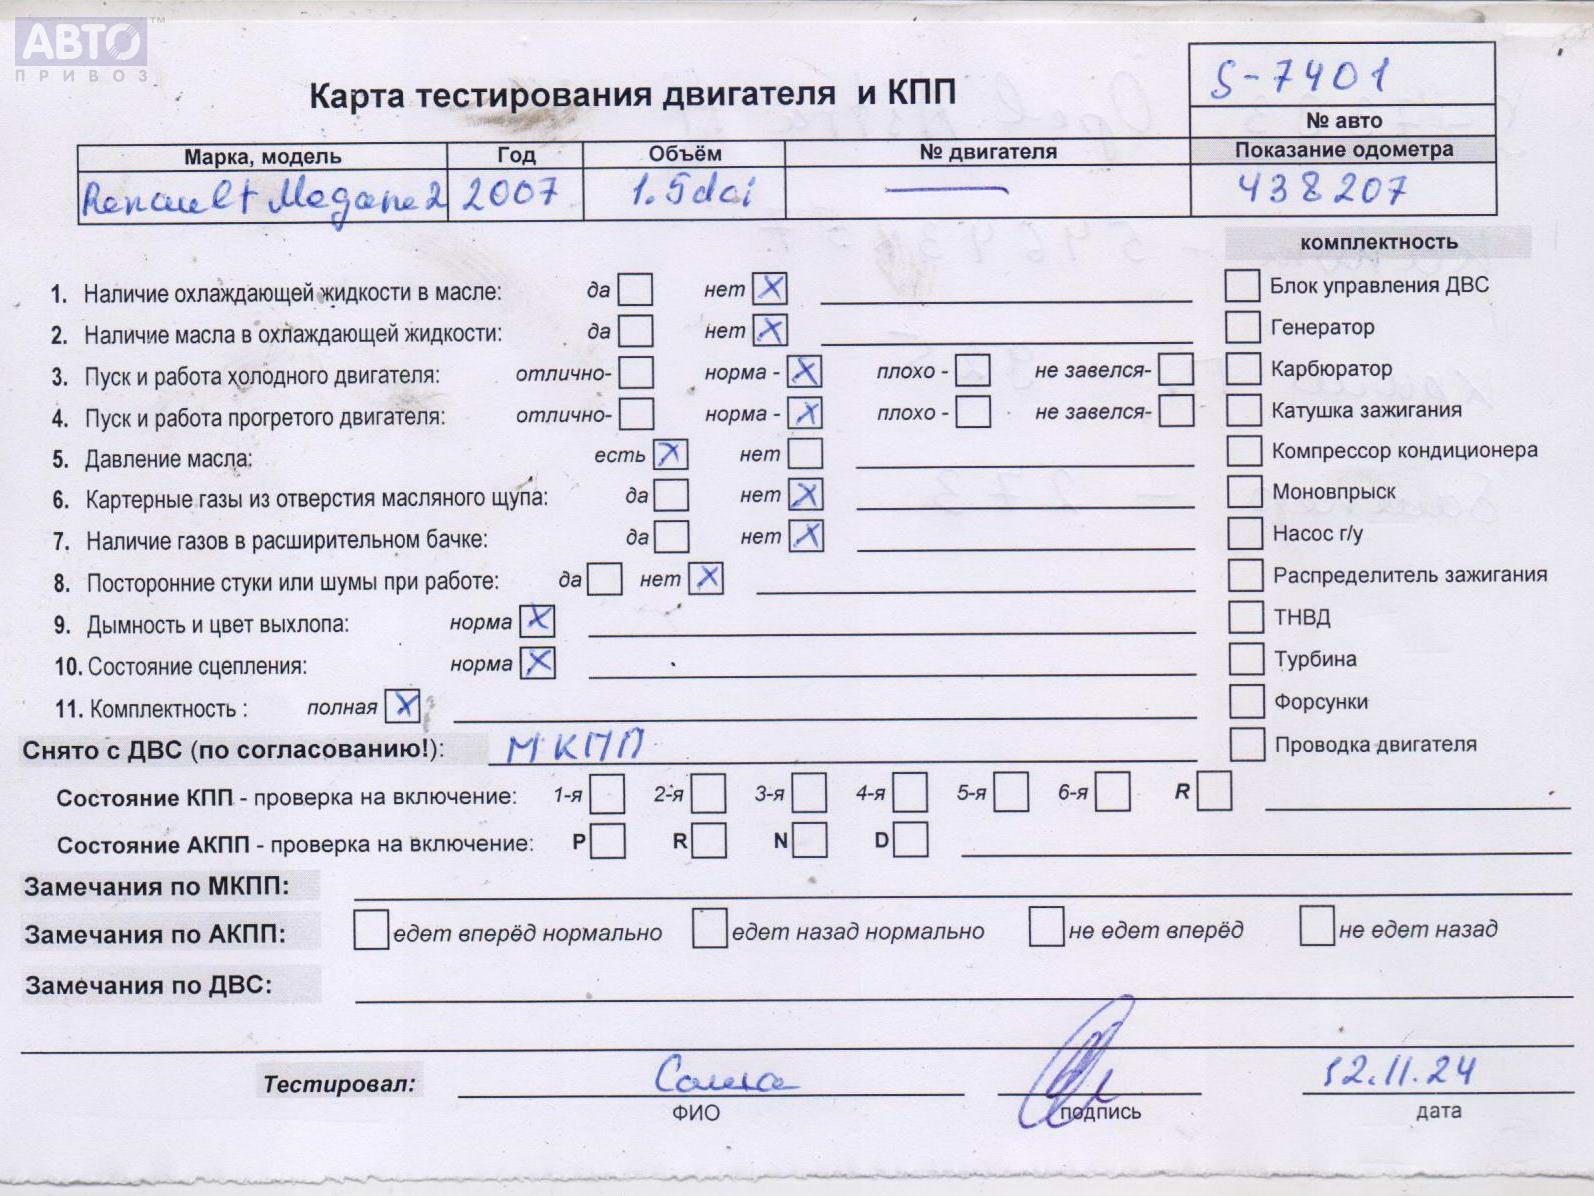 АВТО ™
ПРИВОЗ
Карта тестирования двигателя и КПП
S-7401
№ авто
Марка, модель Год Объём № двигателя Показание одометра
Renault Megane 2 2007 1.5dci — 438207
комплектность
1. Наличие охлаждающей жидкости в масле: да нет X Блок управления ДВС
2. Наличие масла в охлаждающей жидкости: да нет X Генератор
3. Пуск и работа холодного двигателя: отлично- норма - X плохо - не завелся- Карбюратор
4. Пуск и работа прогретого двигателя: отлично- норма - X плохо - не завелся- Катушка зажигания
5. Давление масла: есть X нет Компрессор кондиционера
6. Картерные газы из отверстия масляного щупа: да нет X Моновпрыск
7. Наличие газов в расширительном бачке: да нет X Насос г/у
8. Посторонние стуки или шумы при работе: да нет X Распределитель зажигания
9. Дымность и цвет выхлопа: норма X ТНВД
10. Состояние сцепления: норма X Турбина
11. Комплектность : полная X Форсунки
Снято с ДВС (по согласованию!): МКПП Проводка двигателя
Состояние КПП - проверка на включение: 1-я 2-я 3-я 4-я 5-я 6-я R
Состояние АКПП - проверка на включение: P R N D
Замечания по МКПП:
Замечания по АКПП: едет вперёд нормально едет назад нормально не едет вперёд не едет назад
Замечания по ДВС:
Тестировал: Саша 12.11.24
ФИО подпись дата